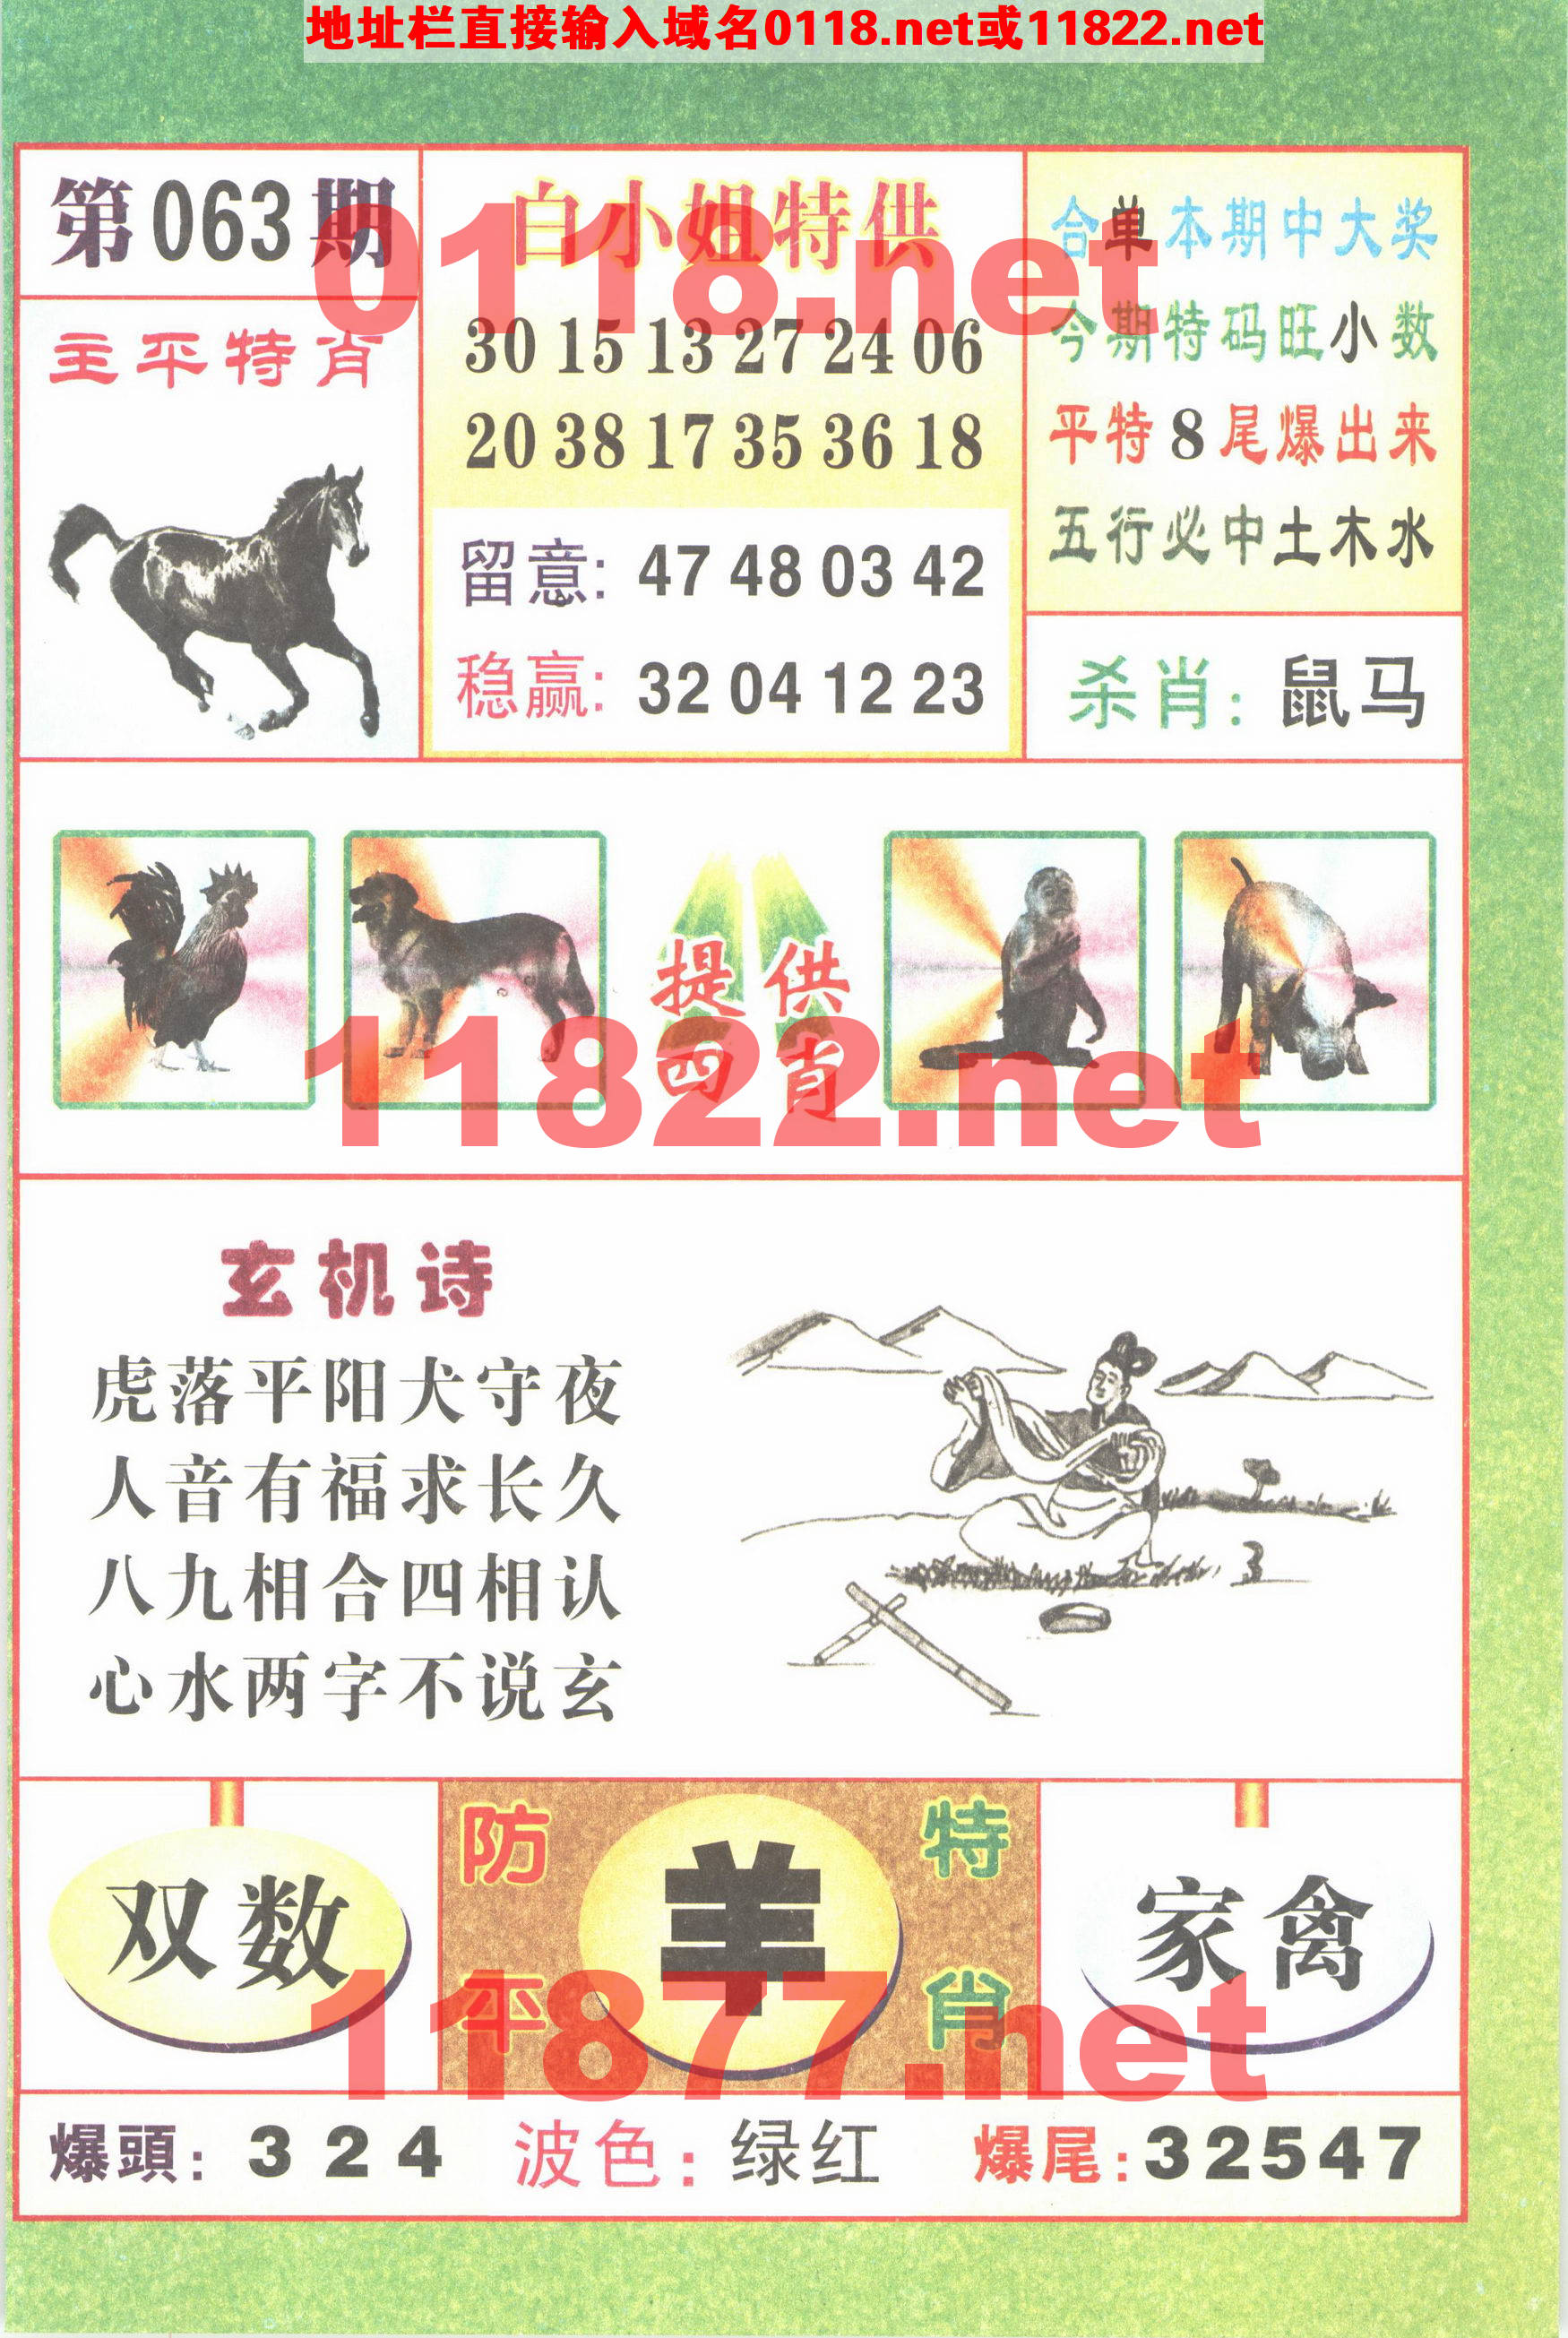 地址栏直接输入域名0118.net或11822.net
第063期
白小姐特供
30 15 13 27 24 06
20 38 17 35 36 18
留意: 47 48 03 42
稳赢: 32 04 12 23
合单本期中大奖
今期特码旺小数
平特8尾爆出来
五行必中土木水
杀肖: 鼠马
主平特肖
0118.net
提供
四肖
11822.net
玄机诗
虎落平阳犬守夜
人音有福求长久
八九相合四相认
心水两字不说玄
双数
防平
羊
特肖
家禽
11877.net
爆頭: 3 2 4
波色: 绿红
爆尾: 32547